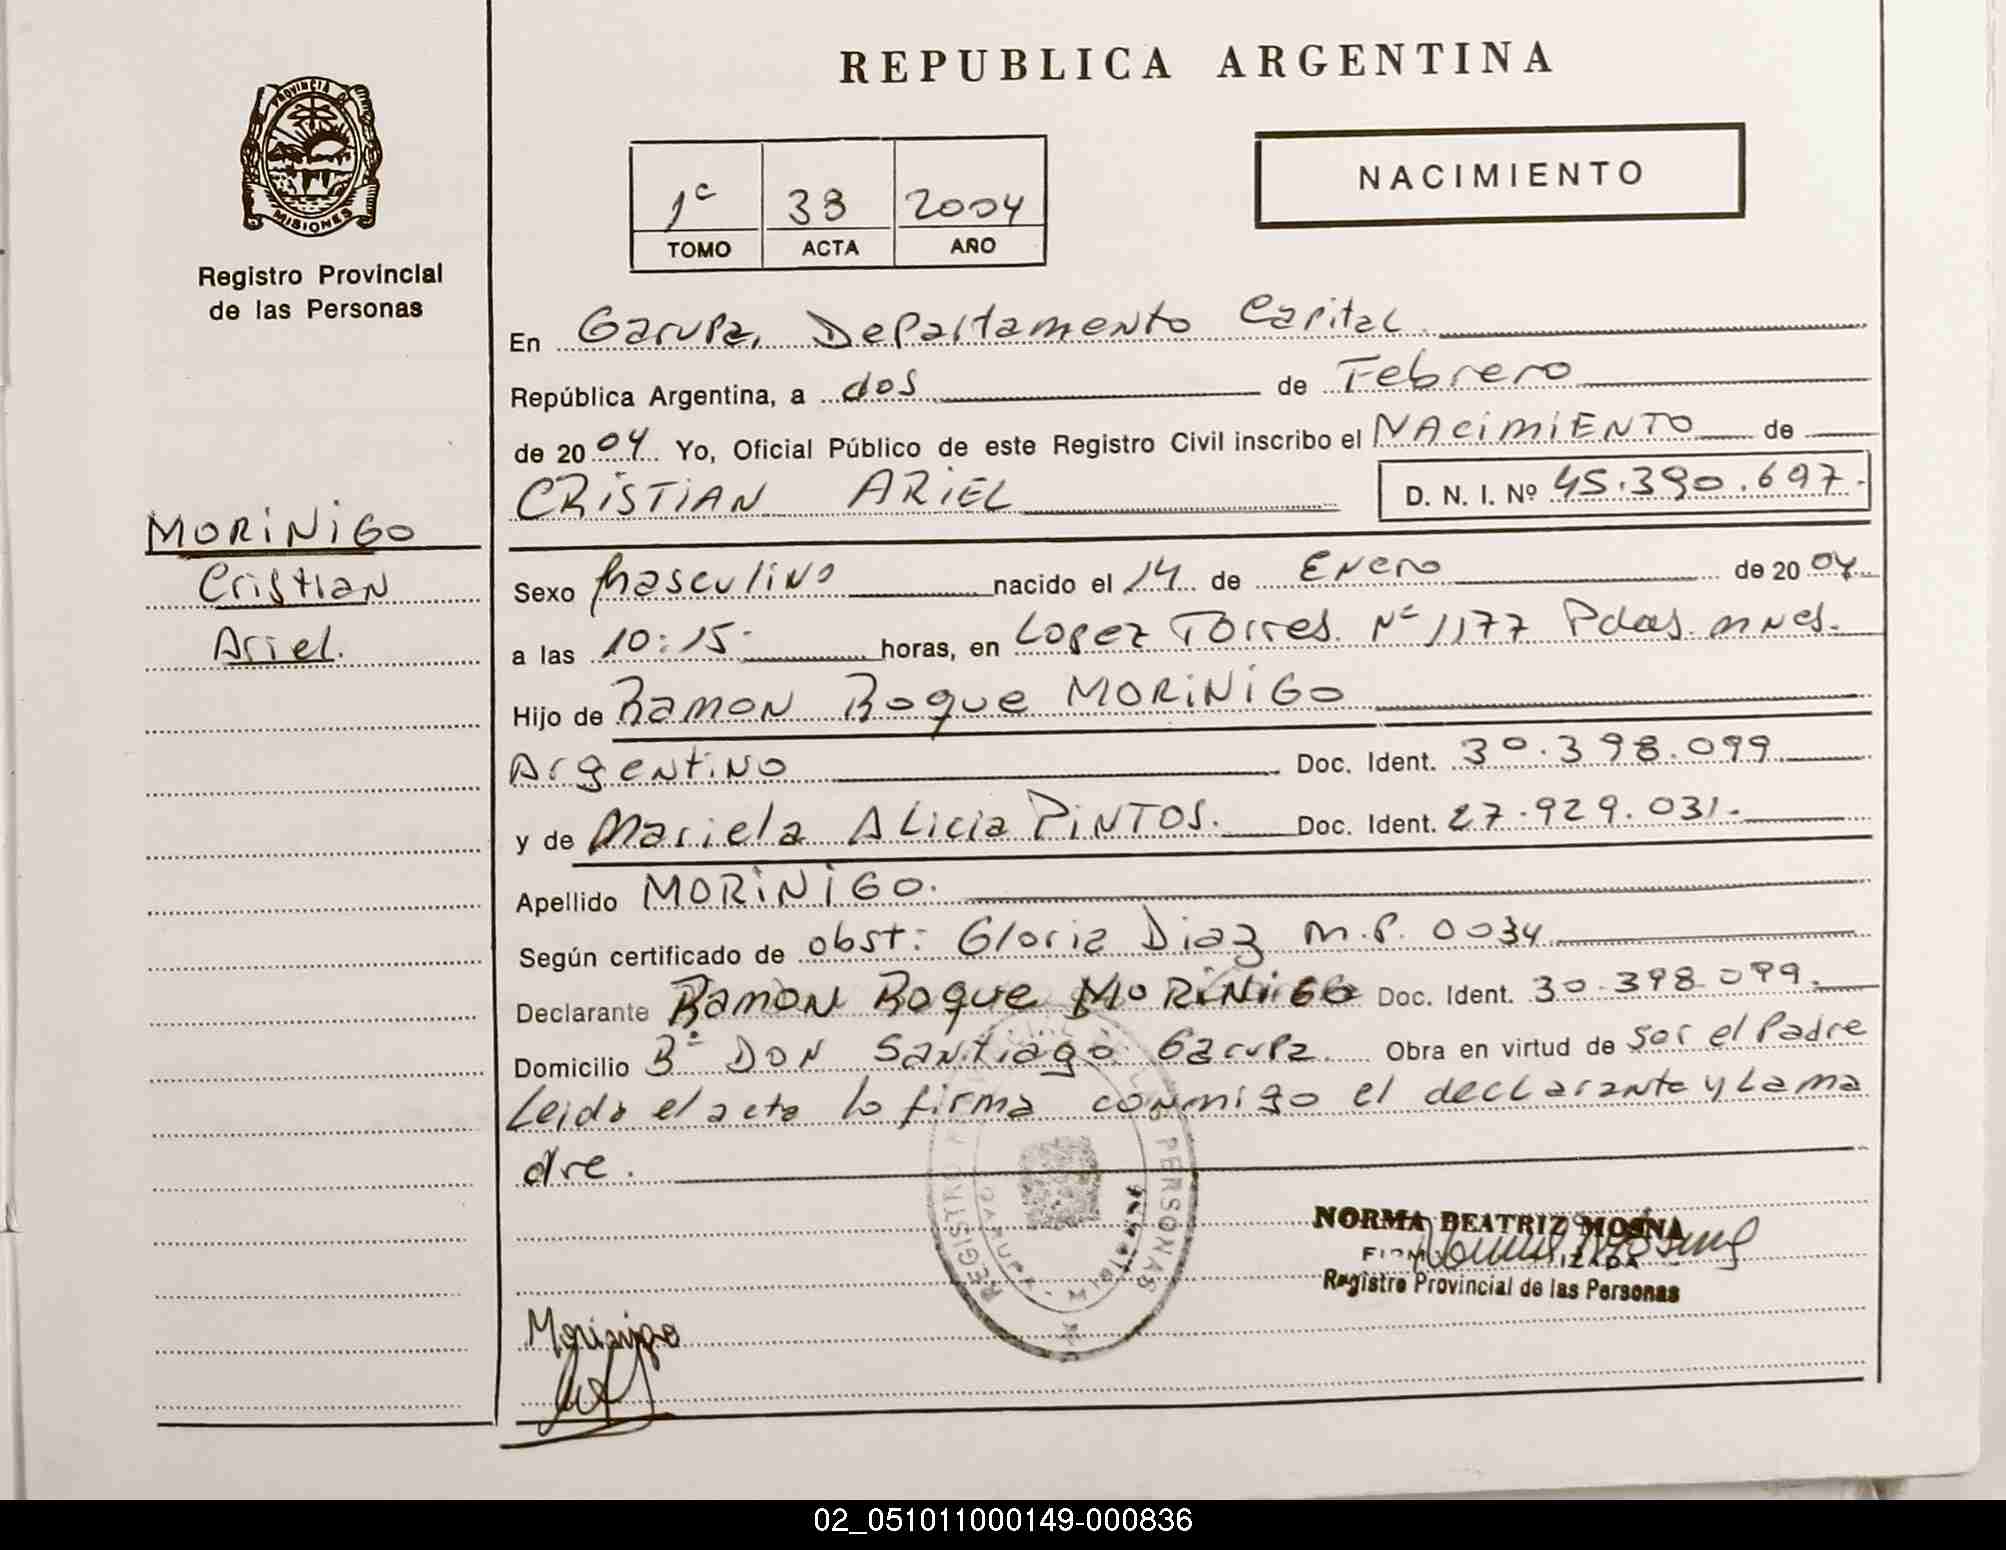 REPUBLICA ARGENTINA
PROVINCIA DE
MISIONES
Registro Provincial
de las Personas
1º 38 2004
TOMO ACTA AÑO
NACIMIENTO
En Garupa, Departamento Capital
República Argentina, a dos de Febrero
de 2004 Yo, Oficial Público de este Registro Civil inscribo el NACIMIENTO de
CRISTIAN ARIEL D. N. I. Nº 45.390.697.
MORINIGO
Cristian
Ariel.
Sexo Masculino nacido el 14 de Enero de 2004
a las 10:15 horas, en Lopez Torres Nº 1177 Pdas. mnes.
Hijo de Ramon Roque MORINIGO
Argentino Doc. Ident. 30.398.099
y de Mariela ALicia PINTOS. Doc. Ident. 27.929.031.
Apellido MORINIGO.
Según certificado de obst: Gloria Diaz M.P. 0034
Declarante Ramon Roque MORINIGO Doc. Ident. 30.398.099.
Domicilio Bº DON Santiago Garupa Obra en virtud de Ser el Padre
Leida el acta lo firma conmigo el decLarante y La ma
dre.
NORMA BEATRIZ MOSNA
Registro Provincial de las Personas
Morinigo
02_051011000149-000836